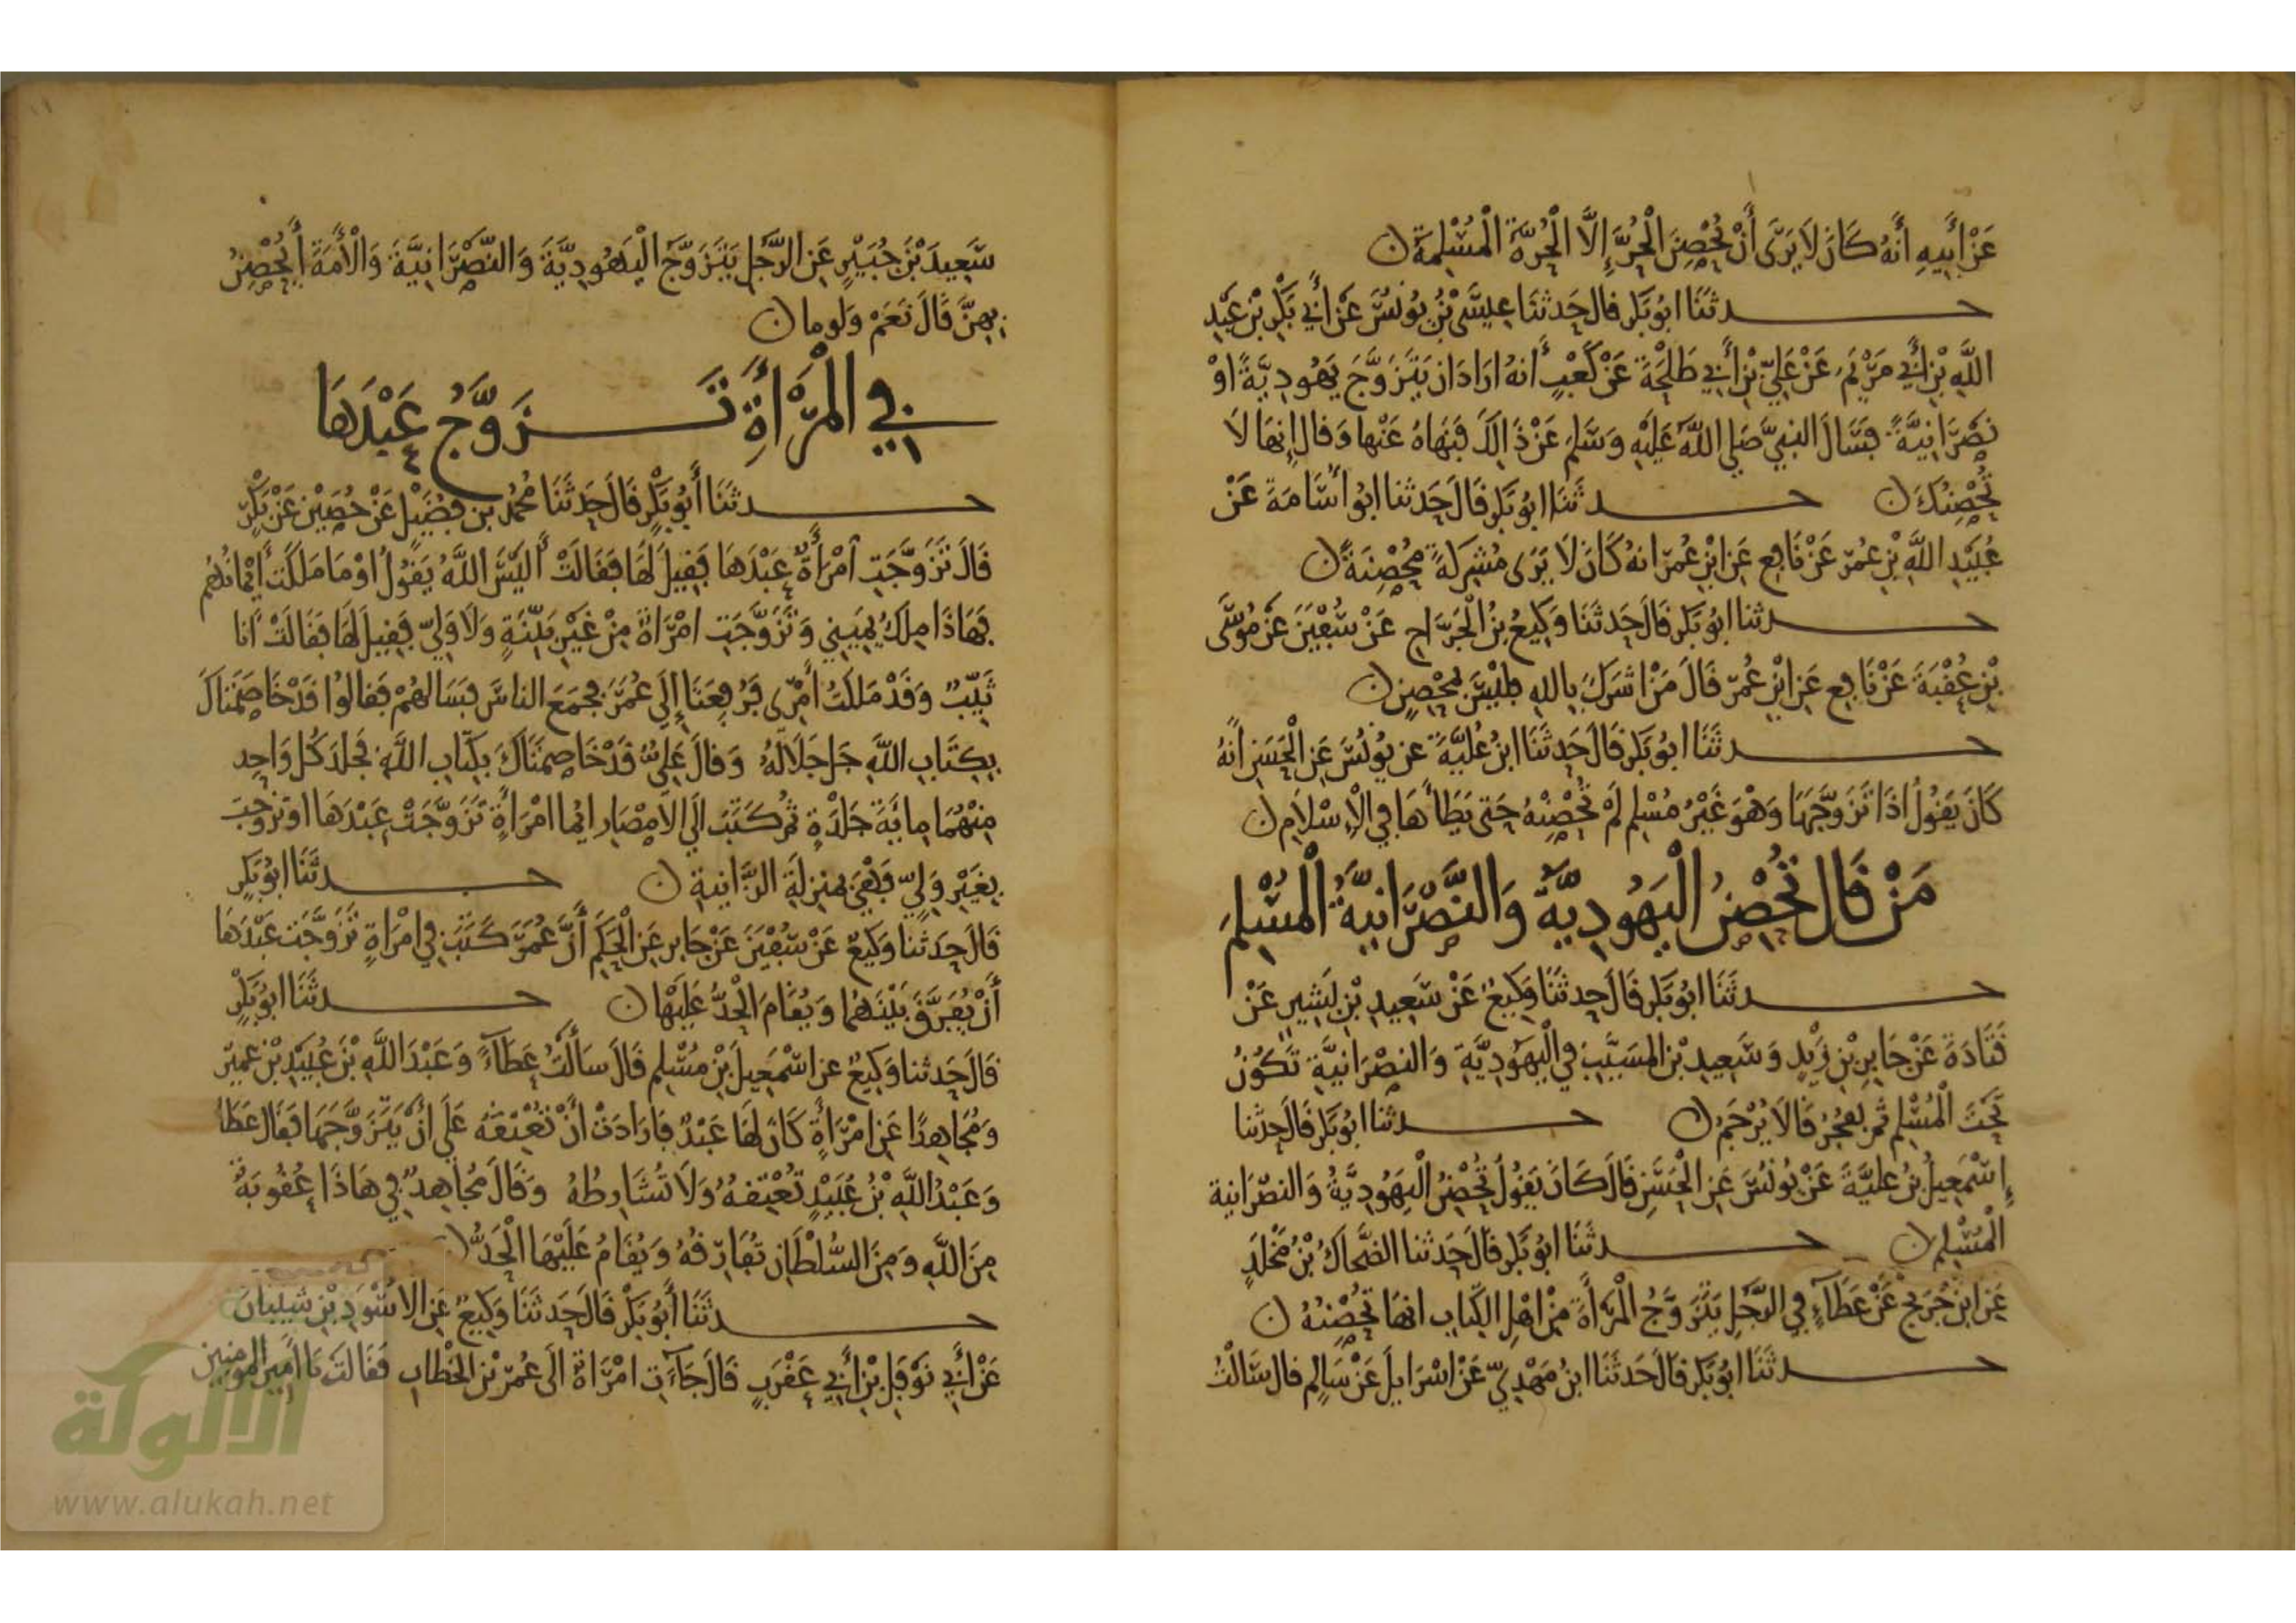 عَنْ أَبِيهِ أَنَّهُ كَانَ لَا يَرَى أَنْ تُحْصِنَ الْحُرَّ إِلَّا الْحُرَّةُ الْمُسْلِمَةُ ن
حدثنا ابو بكر قال حدثنا عيسى بن يونس عن أبي بكر بن عبد
الله بن أبي مريم عن علي بن أبي طلحة عن كعب أنه اراد ان يتزوج يهودية او
نصرانية فسال النبي صلى الله عليه وسلم عن ذالك فنهاه عنها وقال إنها لا
تحصنك ن حدثنا ابو بكر قال حدثنا ابو أسامة عن
عبيد الله بن عمر عن نافع عن ابن عمر انه كان لا يرى مشركة محصنة ن
حدثنا ابو بكر قال حدثنا وكيع بن الجراح عن سفين عن موسى
بن عقبة عن نافع عن ابن عمر قال من اشرك بالله فليس بمحصن ن
حدثنا ابو بكر قال حدثنا ابن علية عن يونس عن الحسن أنه
كان يقول اذا تزوجها وهو غير مسلم لم تحصنه حتى يطأها في الإسلام ن
من قال تحصن اليهودية والنصرانية المسلم
حدثنا ابو بكر قال حدثنا وكيع عن سعيد بن بشير عن
قتادة عن جابر بن زيد وسعيد بن المسيب في اليهودية والنصرانية تكون
تحت المسلم ثم يفجر قالا يرجم ن حدثنا ابو بكر قال حدثنا
إسمعيل بن علية عن يونس عن الحسن قال كان يقول تحصن اليهودية والنصرانية
المسلم ن حدثنا ابو بكر قال حدثنا الضحاك بن مخلد
عن ابن جريج عن عطاء في الرجل يتزوج المرأة من اهل الكتاب انها تحصنه ن
حدثنا ابو بكر قال حدثنا ابن مهدي عن اسرايل عن سالم قال سالت
سعيد بن جبير عن الرجل يتزوج اليهودية والنصرانية والأمة أيحصن
بهن قال نعم ولوما ن
في المرأة تزوج عبدها
حدثنا أبو بكر قال حدثنا محمد بن فضيل عن حصين عن بكر
قال تزوجت امرأة عبدها فقيل لها فقالت أليس الله يقول او ما ملكت أيمانهم
فهاذا ملك يميني وتزوجت امراة من غير بينة ولا ولي فقيل لها فقالت انا
ثيب وقد ملكت أمري فرفعتا إلى عمر فجمع الناس فسالهم فقالوا قد خاصمتاك
بكتاب الله جل جلاله وقال علي قد خاصمتاك بكتاب الله فجلد كل واحد
منهما ماية جلدة ثم كتب الى الامصار ايما امرأة تزوجت عبدها او تزوجت
بغير ولي فهي بمنزلة الزانية ن حدثنا ابو بكر
قال حدثنا وكيع عن سفين عن جابر عن الحكم أن عمر كتب في امراة تزوجت عبدها
أن يفرق بينهما ويقام الحد عليها ن حدثنا ابو بكر
قال حدثنا وكيع عن اسمعيل بن مسلم قال سألت عطاء وعبد الله بن عبيد بن عمير
ومجاهدا عن امرأة كان لها عبد فارادت أن تعتقه على ان يتزوجها فقال عطا
وعبد الله بن عبيد تعتقه ولا تشارطه وقال مجاهد في هاذا عقوبة
من الله ومن السلطان تفارقه ويقام عليها الحد ن
حدثنا أبو بكر قال حدثنا وكيع عن الاسود بن شيبان
عن أبي نوفل بن أبي عقرب قال جآءت امرأة الى عمر بن الخطاب فقالت يا أمير المومنين
الألوكة
www.alukah.net